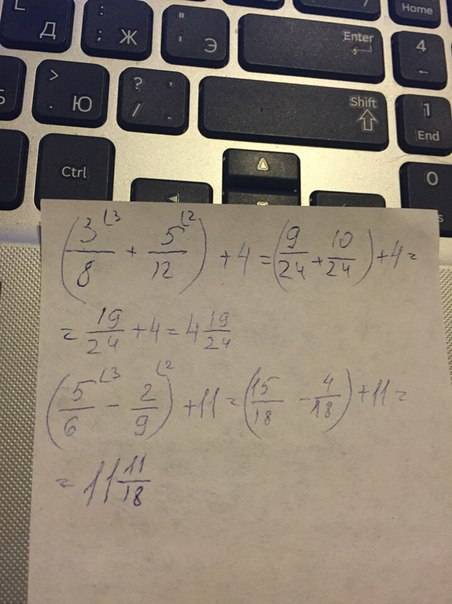 Д : ; Ж " ' Э Enter 4 Home
> . Ю ? / . , Shift 1 End
Ctrl 0
(3/8 ⌊3 + 5/12 ⌊2) + 4 = (9/24 + 10/24) + 4 =
= 19/24 + 4 = 4 19/24
(5/6 ⌊3 - 2/9 ⌊2) + 11 = (15/18 - 4/18) + 11 =
= 11 11/18